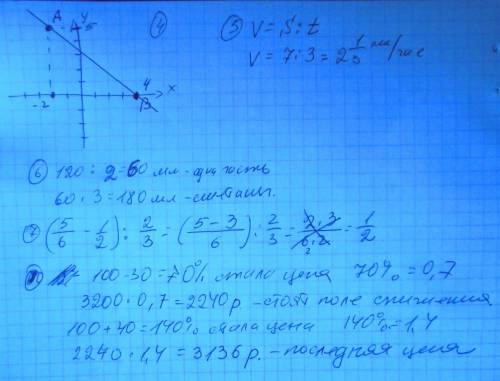 A
y
5
-2
4
B
x
④
⑤ V = S : t
V = 7 : 3 = 2 1/3 км/час
⑥ 120 : 2 = 60 мл - одна часть
60 · 3 = 180 мл - сметаны.
⑦ (5/6 - 1/2) : 2/3 = ((5 - 3)/6) : 2/3 = (2 · 3)/(6 · 2) = 1/2
100 - 30 = 70% стала цена 70% = 0,7
3200 · 0,7 = 2240 р - стоит поле снижения
100 + 40 = 140% стала цена 140% = 1,4
2240 · 1,4 = 3136 р. - последняя цена